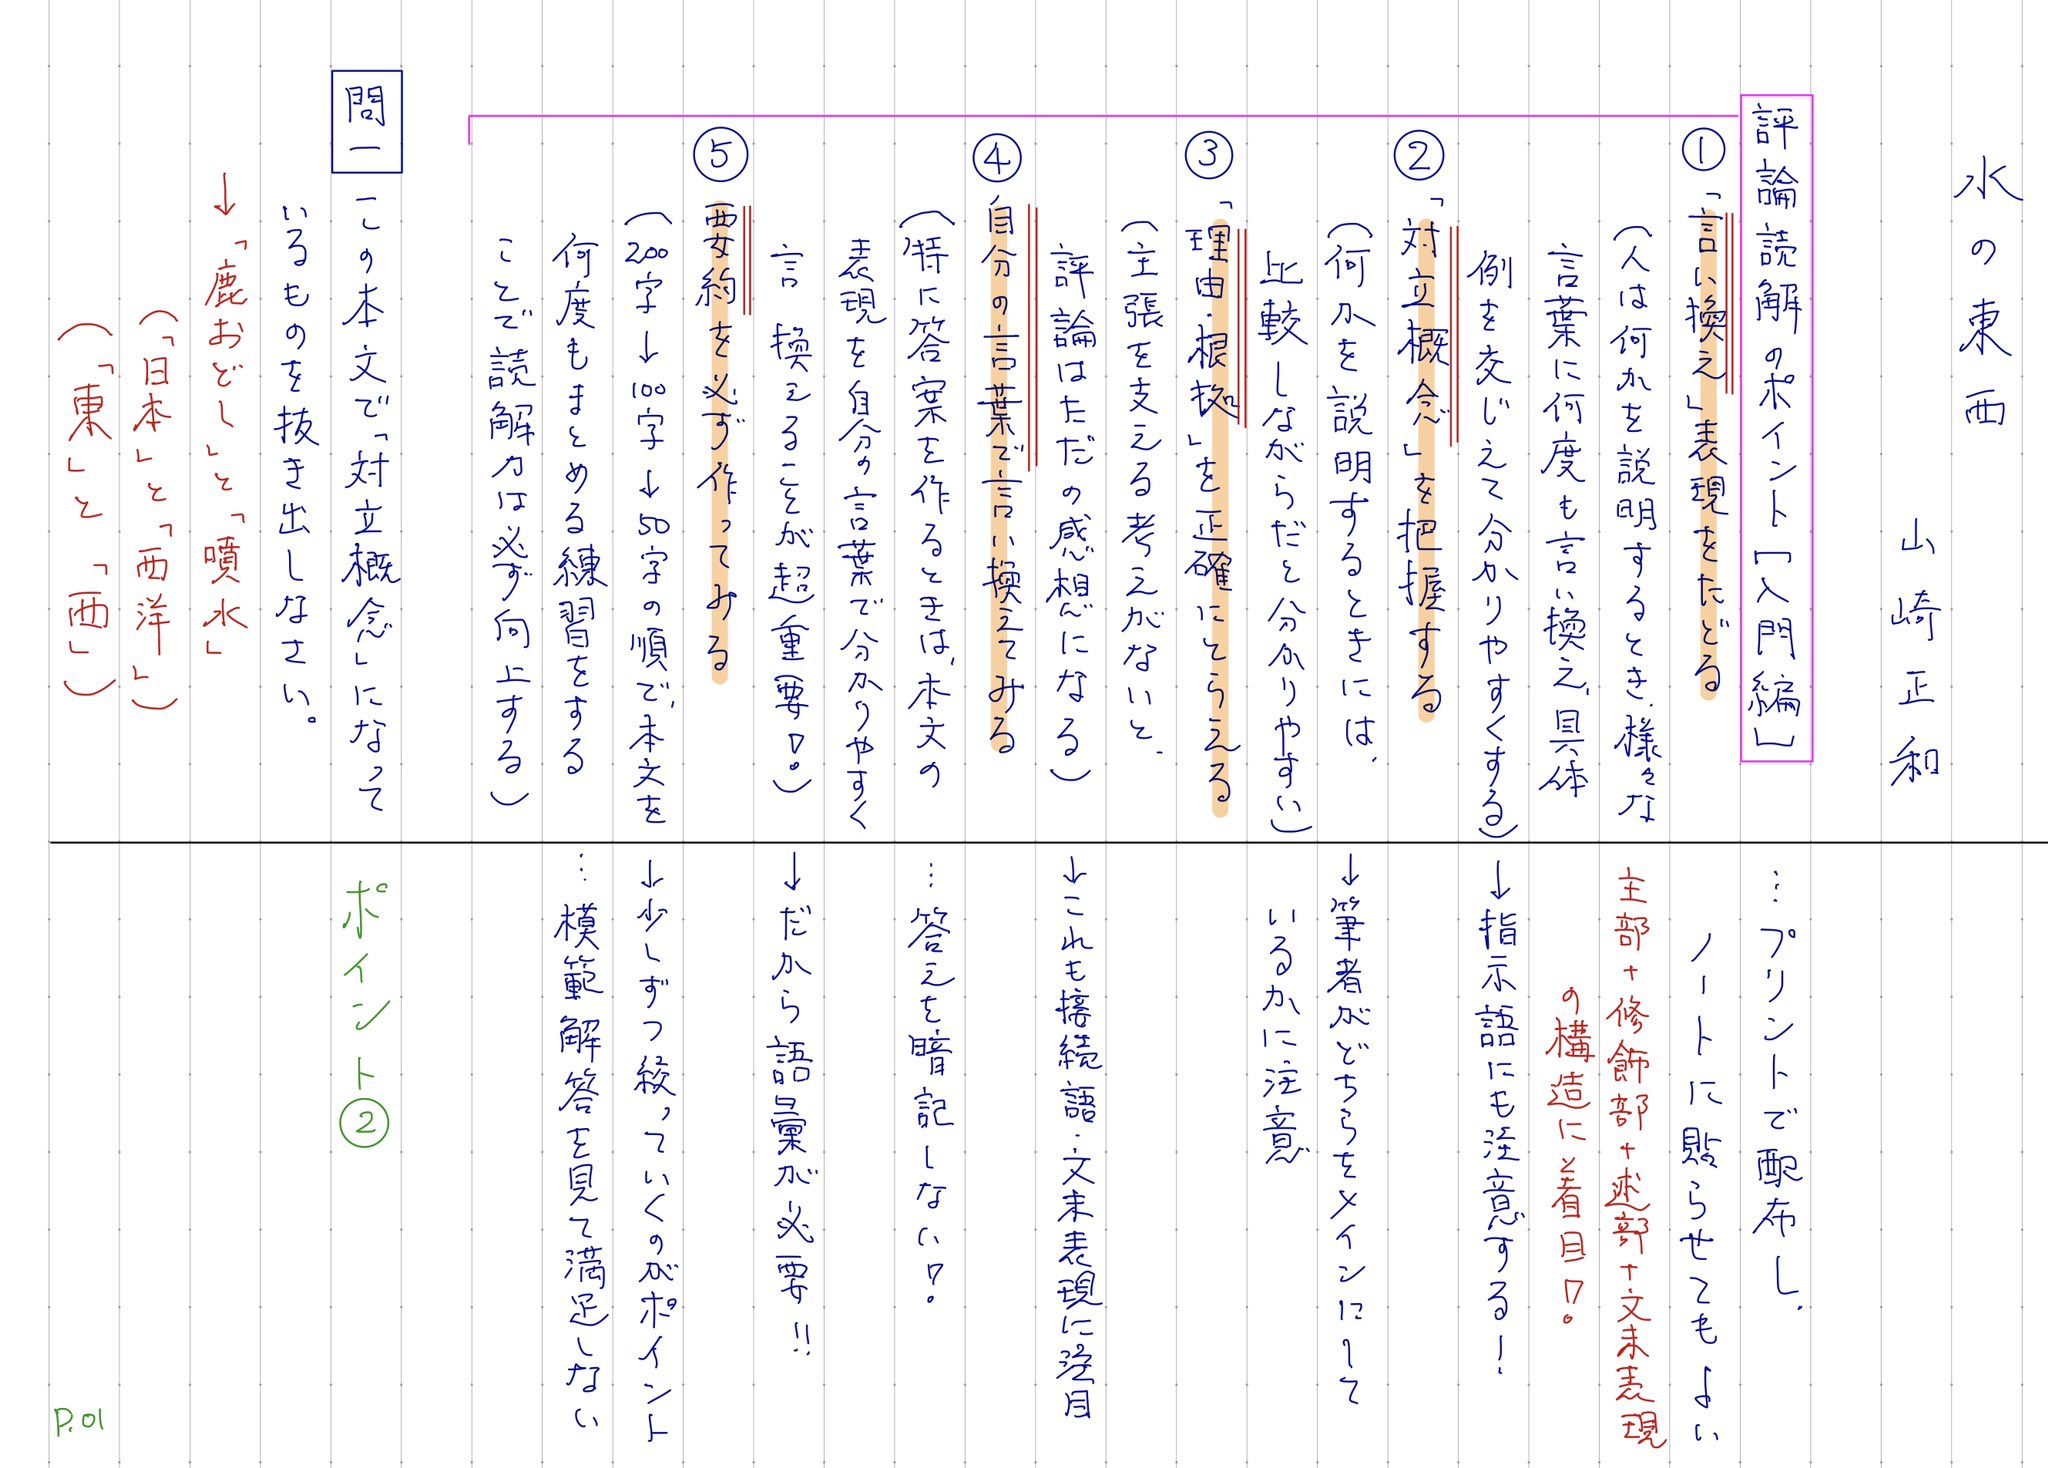 水の東西
山崎正和
評論読解のポイント［入門編］
①「言い換え」表現をたどる
（人は何かを説明するとき、様々な
言葉に何度も言い換え、具体
例を交じえて分かりやすくする）
②「対立概念」を把握する
（何かを説明するときには、
比較しながらだと分かりやすい）
③「理由・根拠」を正確にとらえる
（主張を支える考えがないと、
評論はただの感想になる）
④自分の言葉で言い換えてみる
（特に答案を作るときは、本文の
表現を自分の言葉で分かりやすく
言い換えることが超重要！）
⑤要約を必ず作ってみる
（200字→100字→50字の順で、本文を
何度もまとめる練習をする
ことで読解力は必ず向上する）
問一 この本文で「対立概念」になって
いるものを抜き出しなさい。
→「鹿おどし」と「噴水」
（「日本」と「西洋」）
（「東」と「西」）
…プリントで配布し、
ノートに貼らせてもよい
主部＋修飾部＋述部＋文末表現
の構造に着目！
→指示語にも注意する！
→筆者がどちらをメインにして
いるかに注意
→これも接続語・文末表現に注目
…答えを暗記しない！
→だから語彙が必要!!
→少しずつ絞っていくのがポイント
…模範解答を見て満足しない
ポイント②
P.01